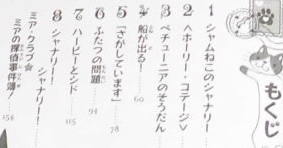 もくじ
1 シャムねこのシャナリー
2 ヘホナリー・コテージ∨
3 ペチューニアのそうだん
4 船が出る! 60
5 「さがしています」 78
6 ふたつの問題 94
7 ハーピーとシド 115
8 シャナリー!シャナリー!
ミア・クラブ☆
ミアの探偵事件簿! 156